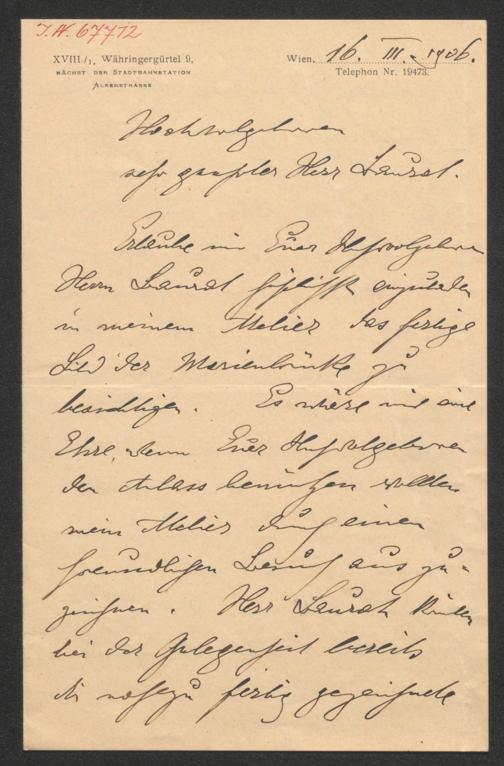 I.N. 67712
XVIII./1, Währingergürtel 9,
NÄCHST DER STADTBAHNSTATION
ALSERSTRASSE
Wien, 16. III. 1906.
Telephon Nr. 19473.
Hochwolgeboren
sehr geehrter Herr Baurat.
Erlaube mir Euer Hochwolgeboren
Herrn Baurat höflichst einzuladen
in meinem Atelier das fertige
Bild der Marienbrücke zu
besichtigen. Es wäre mir eine
Ehre, wenn Euer Hochwolgeboren
den Anlass benützen wollten
mein Atelier durch einen
freundlichen Besuch aus zu-
zeichnen. Herr Baurat
bei der Gelegenheit bereits
die nahezu fertig gezeichnete